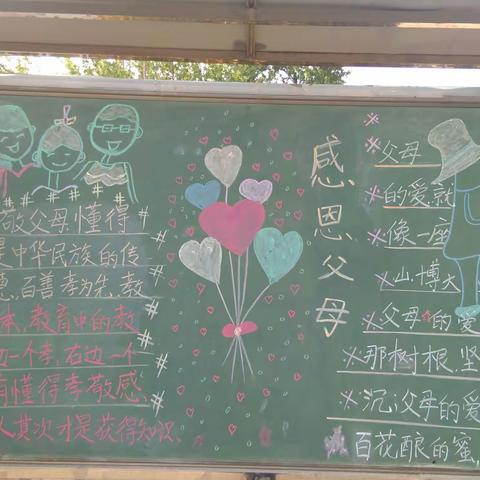 敬父母懂得
是中华民族的传
德,百善孝为先,教
本,教育中的教
边一个孝,右边一个
有懂得孝敬感、
人其次才是获得知识、
感恩父母
父母
的爱就
像一座
山,博大
父母的爱
那树根,坚
沉;父母的爱
百花酿的蜜,